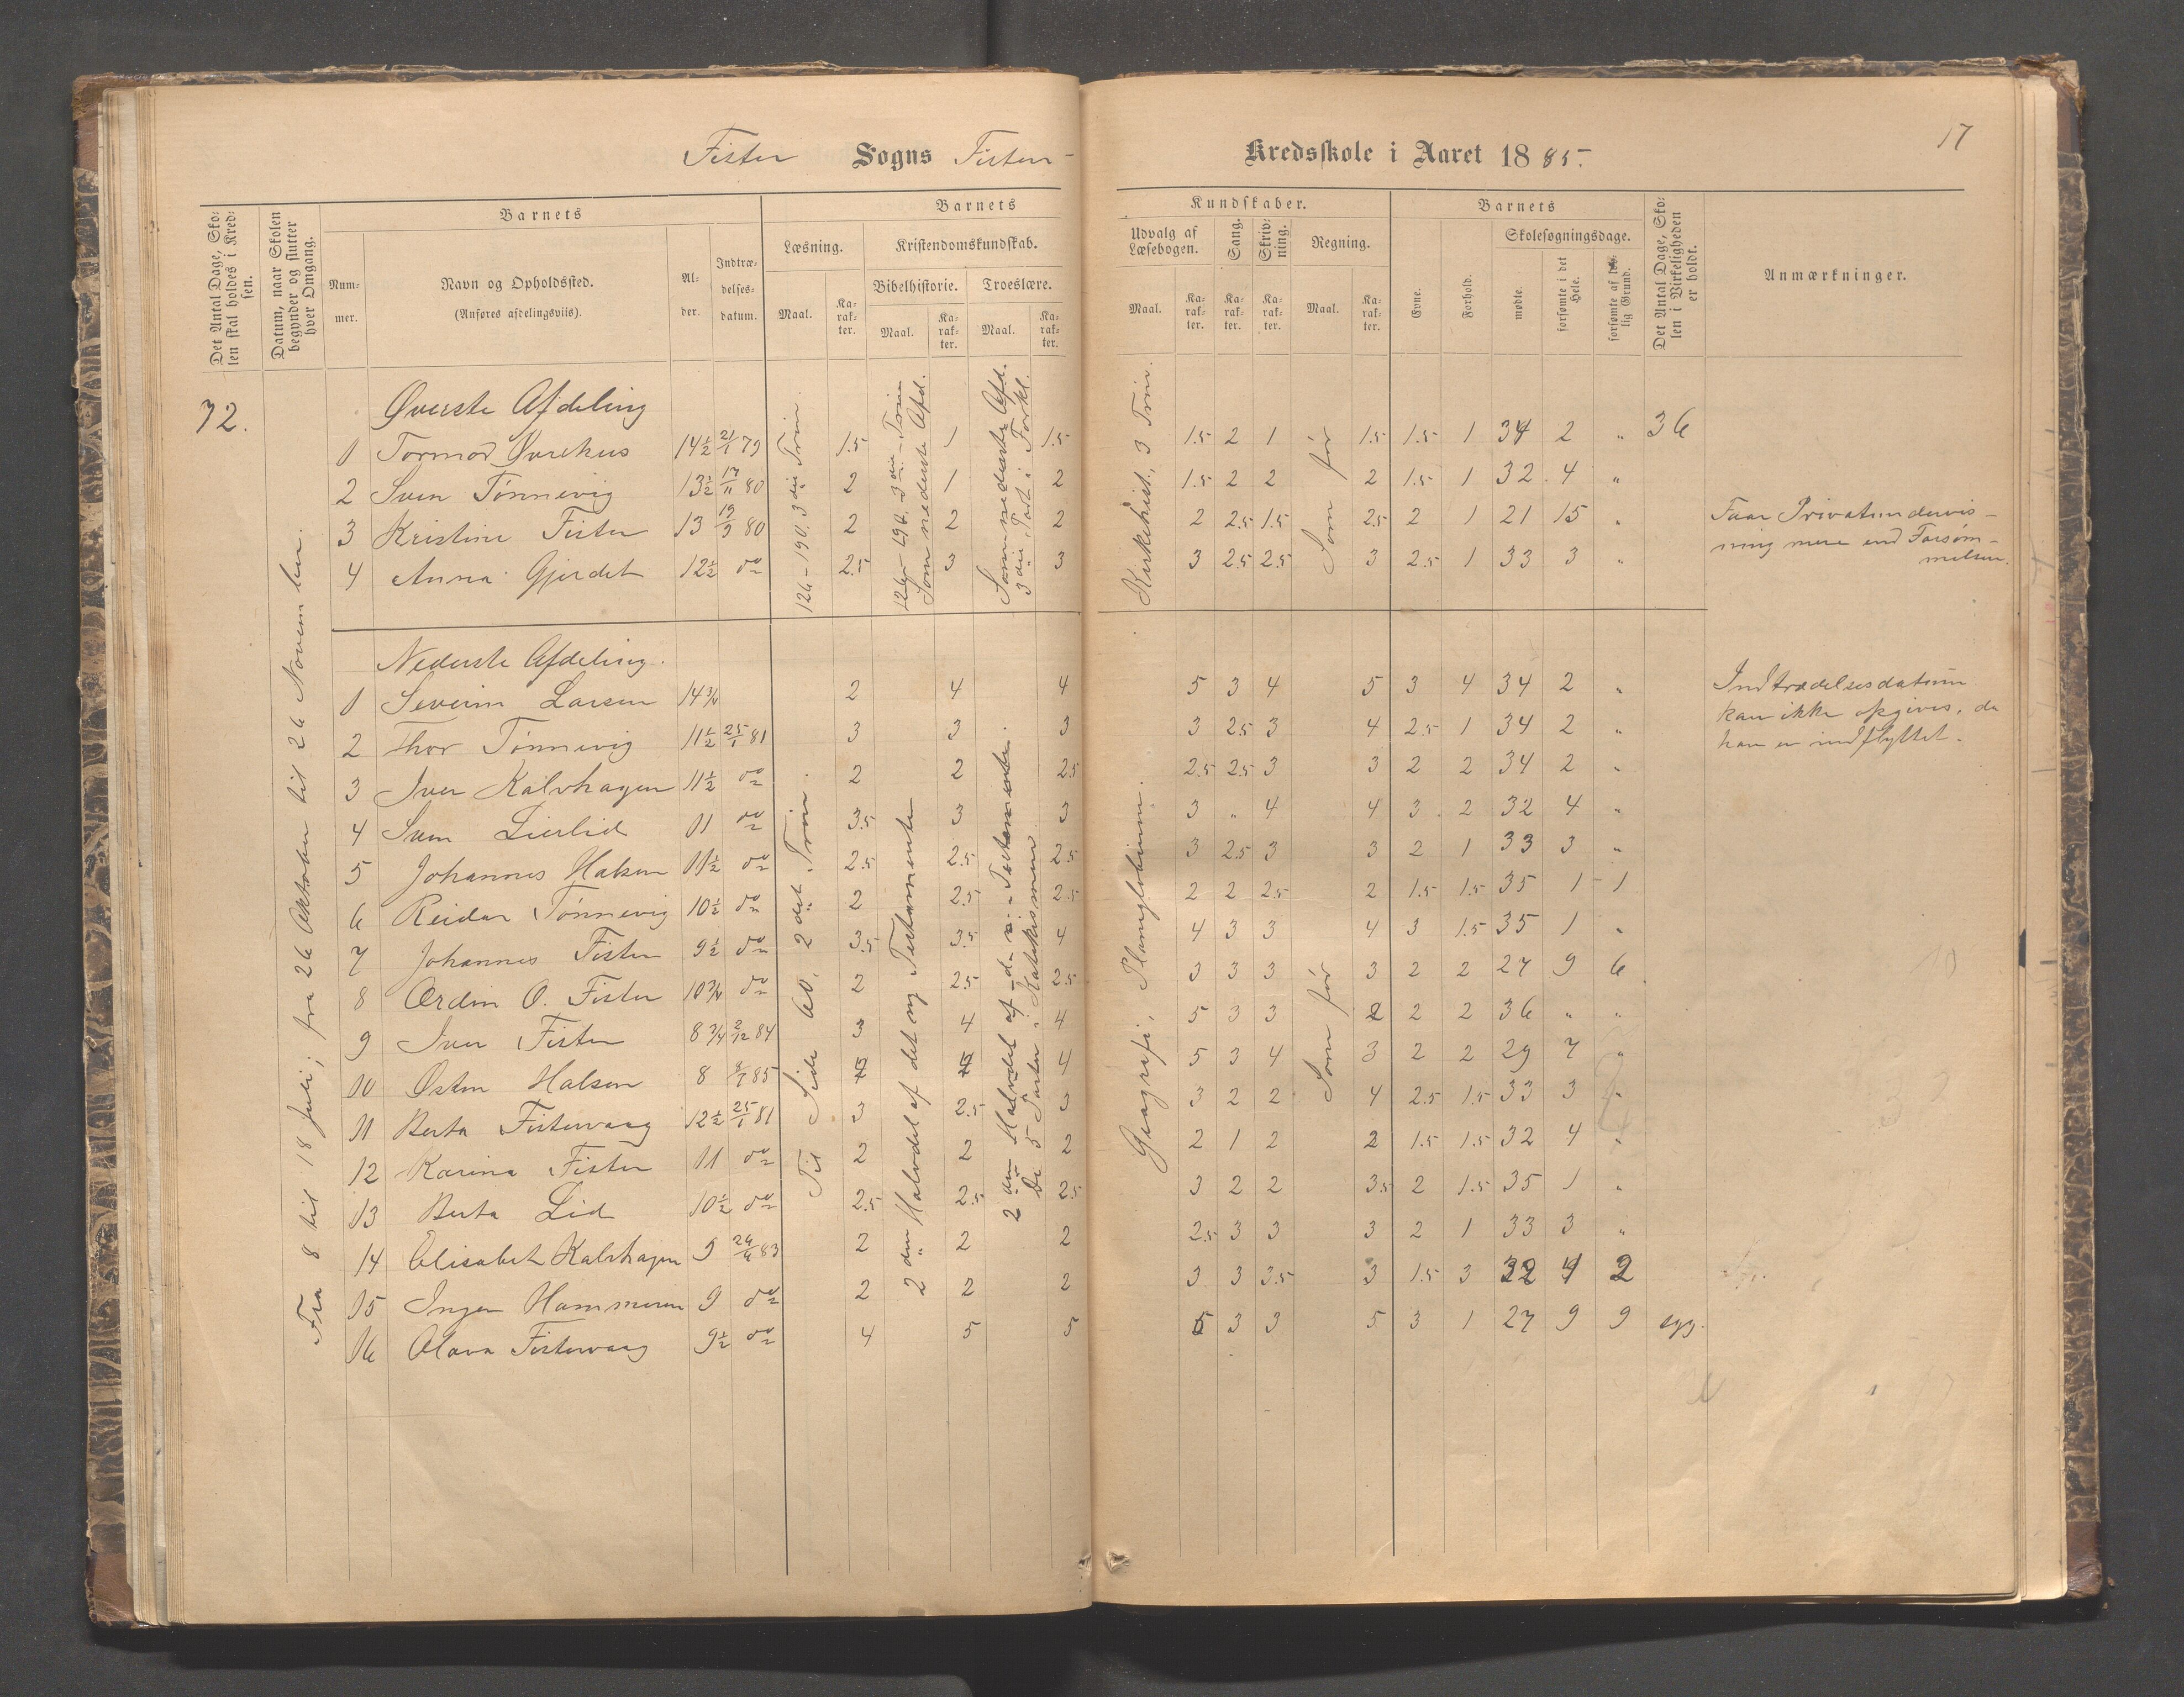 17
Fister Sogns Fister- Kredsskole i Aaret 1885.
Det Antal Dage, Skolen skal holdes i Kredsen.
Datum, naar Skolen begynder og slutter hver Omgang.
Barnets
Nummer.
Navn og Opholdssted.
(Anføres afdelingsvils).
Alder.
Indtrædelsesdatum.
Barnets Kundskaber.
Læsning.
Maal.
Karakter.
Kristendomskundskab.
Bibelhistorie.
Maal.
Karakter.
Troeslære.
Maal.
Karakter.
Udvalg af Læsebogen.
Maal.
Karakter.
Sang.
Karakter.
Skrivning.
Karakter.
Regning.
Maal.
Karakter.
Barnets
Evne.
Forhold.
Skolesøgningsdage.
mødte.
forsømte i det Hele.
forsømte af lovlig Grund.
Det Antal Dage, Skolen i Virkeligheden er holdt.
Anmærkninger.
72.
Fra 8 til 18 Juli; fra 26 Oktober til 26 November.
Øverste Afdeling
126-190. 3die Trin.
126-190. 3die Trin
Som nederste Afd.
Som nederste Afd.
3die Part i Forkl.
Kirkehist., 3 Trin.
Som før
36
1 Tormod Øvrehus 14½ 21/1 79 1.5 1 1.5 1.5 2 1 1.5 1.5 1 34 2 "
2 Sven Tønnevig 13½ 17/11 80 2 1 2 1.5 2 2 2 1.5 1 32 4 "
3 Kristine Fister 13 13/9 80 2 2 2 2 2.5 1.5 2.5 2 1 21 15 "
4 Anna Gjerdet 12½ do 2.5 3 3 3 2.5 2.5 3 2.5 1 33 3 "
Faar Privatundervis-
ning mere end Forsøm-
melsen.
Nederste Afdeling.
Til Side 60, 2det Trin.
2den Halvdel af det ny Testamente
2den Halvdel af d. n. Testamente.
De 5 Parter i Katekismen
Geografi, Planglobium.
Som før
1 Severin Larsen 14¾ 2 4 4 5 3 4 5 3 4 34 2 "
2 Thor Tønnevig 11½ 25/1 81 3 3 3 3 2.5 3 4 2.5 1 34 2 "
3 Iver Kalvhagen 11½ do 2 2 2.5 2.5 2.5 3 3 2 2 34 2 "
4 Sven Lierlid 11 do 3.5 3 3 3 " 4 4 3 2 32 4 "
5 Johannes Halsen 11½ do 2.5 2.5 2.5 3 2.5 3 3 2 1 33 3 "
6 Reidar Tønnevig 10½ do 2 2.5 2.5 2 2 2.5 2 1.5 1.5 35 1 - 1
7 Johannes Fister 9½ do 3.5 3.5 4 4 3 3 4 3 1.5 35 1 "
8 Ordin O. Fister 10¾ do 2 2.5 2.5 3 3 3 3 2 2 27 9 6
9 Iver Fister 8¾ 2/12 84 3 4 4 5 3 3 2 2 2 36 " "
10 Østen Halsen 8 8/7 85 4 4 4 5 3 4 3 2 2 29 7 "
11 Berta Fistervaag 12½ 25/1 81 3 2.5 3 3 2 2 4 2.5 1.5 33 3 "
12 Karina Fister 11 do 2 2 2 2 1 2 2 1.5 1.5 32 4 "
13 Berta Lid 10½ do 2.5 2.5 2.5 3 2 2 3.5 2 1.5 35 1 "
14 Elisabet Kalvhagen 9 26/6 83 2 2 2 2.5 3 3 3 2 1 33 3 "
15 Inger Hammeren 9 do 2 2 2 3 3 3.5 3 1.5 3 32 4 2
16 Olava Fistervaag 9½ do 4 5 5 5 3 3 5 3 1 27 9 9 syg.
Indtrædelsesdatum
kan ikke opgives, da
han er indflyttet.